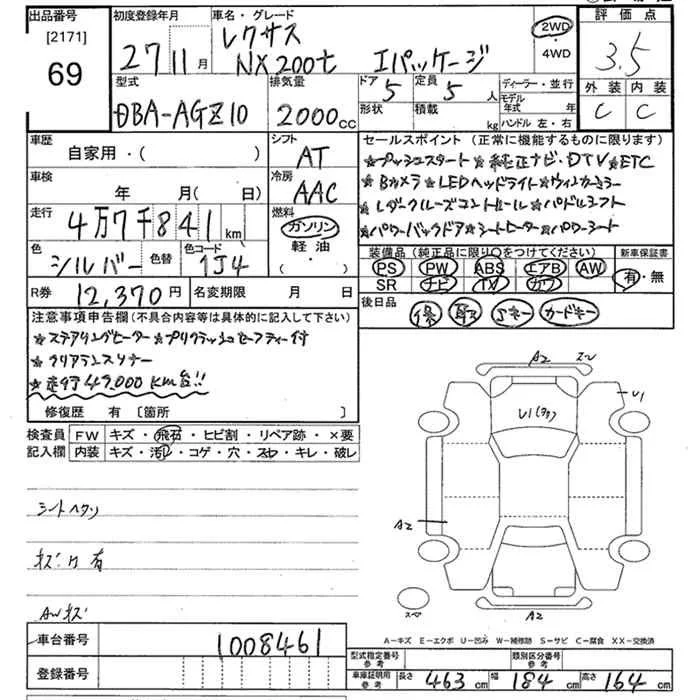 出品番号
[2171]
69
初度登録年月
27 11 月
車名・グレード
レクサス
NX200t Iパッケージ
2WD
・4WD
評価点
3.5
外装 内装
C C
型式
DBA-AGZ10
排気量
2000cc
ドア 5
形状
定員 5 人
積載 kg
ディーラー・並行
モデル年式 年
ハンドル 左・右
車歴
自家用・( )
シフト
AT
車検
年 月( 日)
冷房
AAC
走行
4万7千841km
燃料
ガソリン
軽油・
( ・ )
色
シルバー
色替
色コード
1J4
R券 12,370円
名変期限 月 日
セールスポイント(正常に機能するものに限ります)
★プッシュスタート★純正ナビ・DTV★ETC
★Bカメラ★LEDヘッドライト★ウィンカーミラー
★レーダークルーズコントロール★パドルシフト
★パワーバックドア★シートヒーター★パワーシート
装備品(純正品に限り○をつけてください)
PS PW ABS エアB AW
SR ナビ TV カワ
新車保証書
有・無
後日品
保 取 Sキー カードキー
注意事項申告欄(不具合内容等は具体的に記入して下さい)
★ステアリングヒーター★プリクラッシュセーフティー付
★クリアランスソナー
★走行49,000KM台!!
修復歴 有 〔箇所 〕
検査員記入欄
FW キズ・飛石・ヒビ割・リペア跡・×要
内装 キズ・汚れ・コゲ・穴・スレ・キレ・破レ
シートヘタリ
キズ凹有
AWキズ
A2
U1
A2
A2
スペア
A-キズ E-エクボ U-凹み W-補修跡 S-サビ C-腐食 XX-交換済
車台番号
1008461
登録番号
型式指定番号
参考
類別区分番号
参考
車庫証明用
参考
長さ 463 cm 幅 184 cm 高さ 164 cm